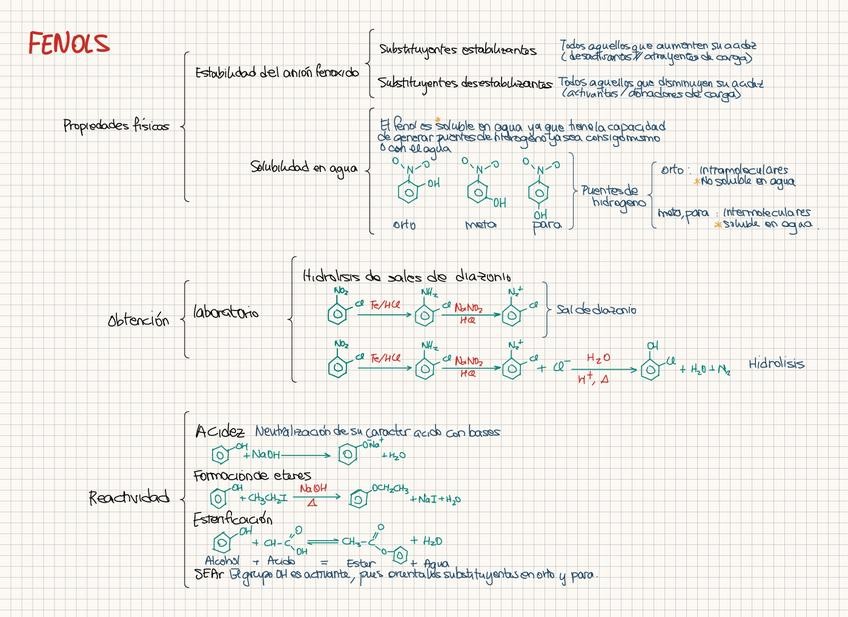 FENOLS
Propiedades físicas
Estabilidad del anión fenoxido
Substituyentes estabilizantes
Todos aquellos que aumenten su acidez
(desactivantes // atrayentes de carga)
Substituyentes desestabilizantes
Todos aquellos que disminuyen su acidez
(activantes / donadores de carga)
Solubilidad en agua
El fenol es soluble en agua ya que tiene la capacidad
de generar puentes de hidrógeno ya sea consigo mismo
o con el agua
O N O
OH
orto
O N O
OH
meta
O N O
OH
para
Puentes de
hidrogeno
orto: Intramoleculares
*No soluble en agua
meta, para: Intermoleculares
*soluble en agua.
Obtención
laboratorio
Hidrolisis de sales de diazonio
NO₂ Cl Fe/HCl NH₂ Cl NaNO₂ HCl N₂⁺ Cl
Sal de diazonio
NO₂ Cl Fe/HCl NH₂ Cl NaNO₂ HCl N₂⁺ Cl + Cl⁻ H₂O H⁺, Δ OH Cl + H₂O + N₂
Hidrolisis
Reactividad
Acidez Neutralización de su caracter acido con bases
OH + NaOH O⁻Na⁺ + H₂O
Formacion de eteres
OH + CH₃CH₂I NaOH Δ OCH₂CH₃ + NaI + H₂O
Esterificación
OH + CH-C O OH CH₃-C O O + H₂O
Alcohol + Acido = Ester + Agua
SEAr El grupo OH es activante, pues orienta los substituyentes en orto y para.